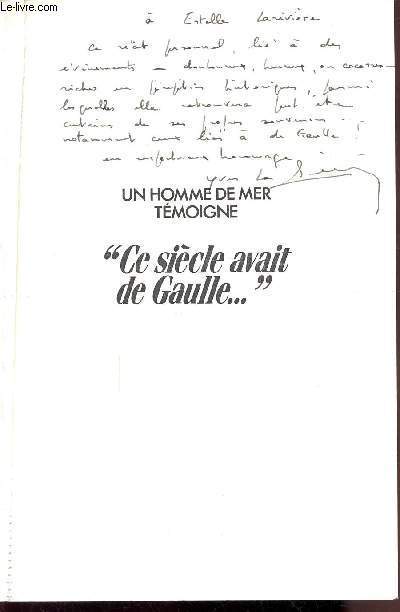 Le-livre.com
à Estelle Larivière
Ce récit personnel, lié à des
événements – douloureux, heureux, ou cocasses –
riches en péripéties historiques, parmi
lesquelles elle retrouvera peut être
certains de ses propres souvenirs –
notamment ceux liés à de Gaulle !
en respectueux hommage
Yves La
UN HOMME DE MER
TÉMOIGNE
“Ce siècle avait
de Gaulle...”